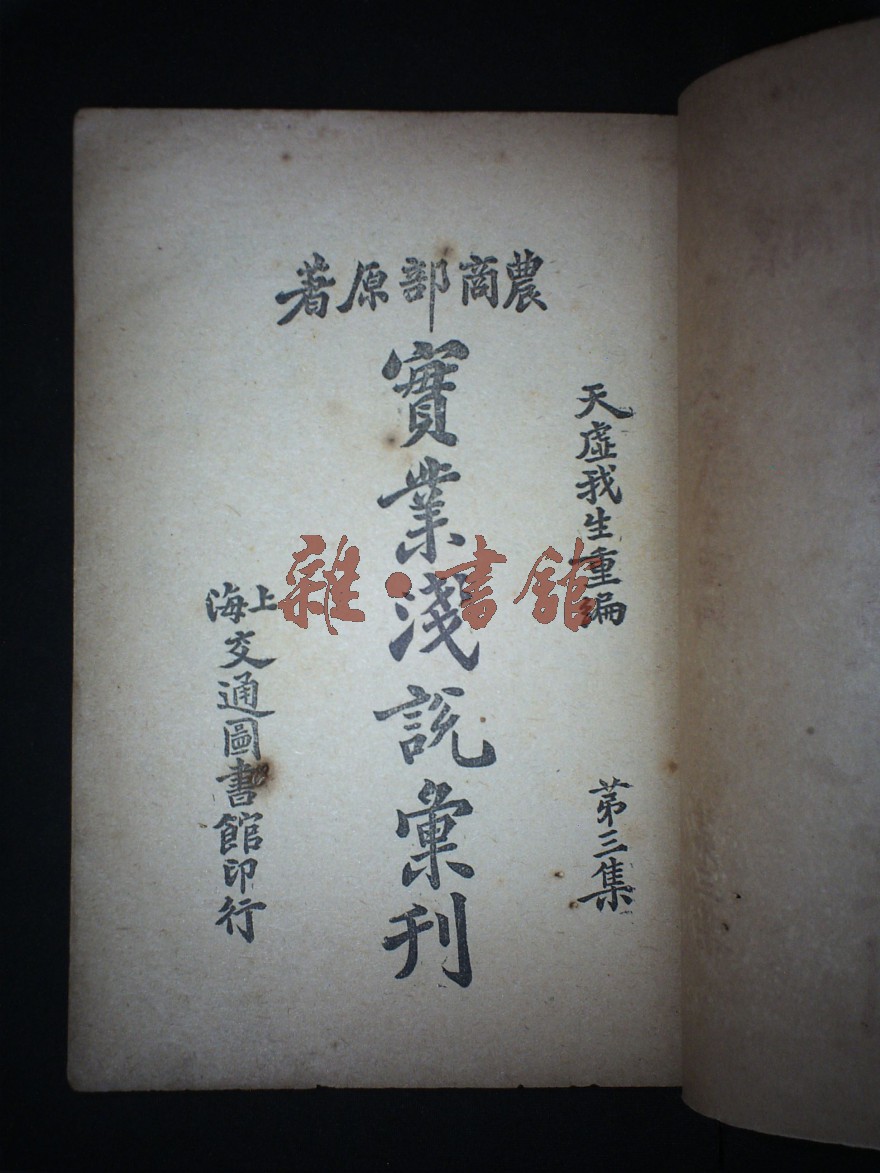 農商部原著
天虛我生重編
第三集
實業淺說彙刊
上海交通圖書館印行
雜·書館